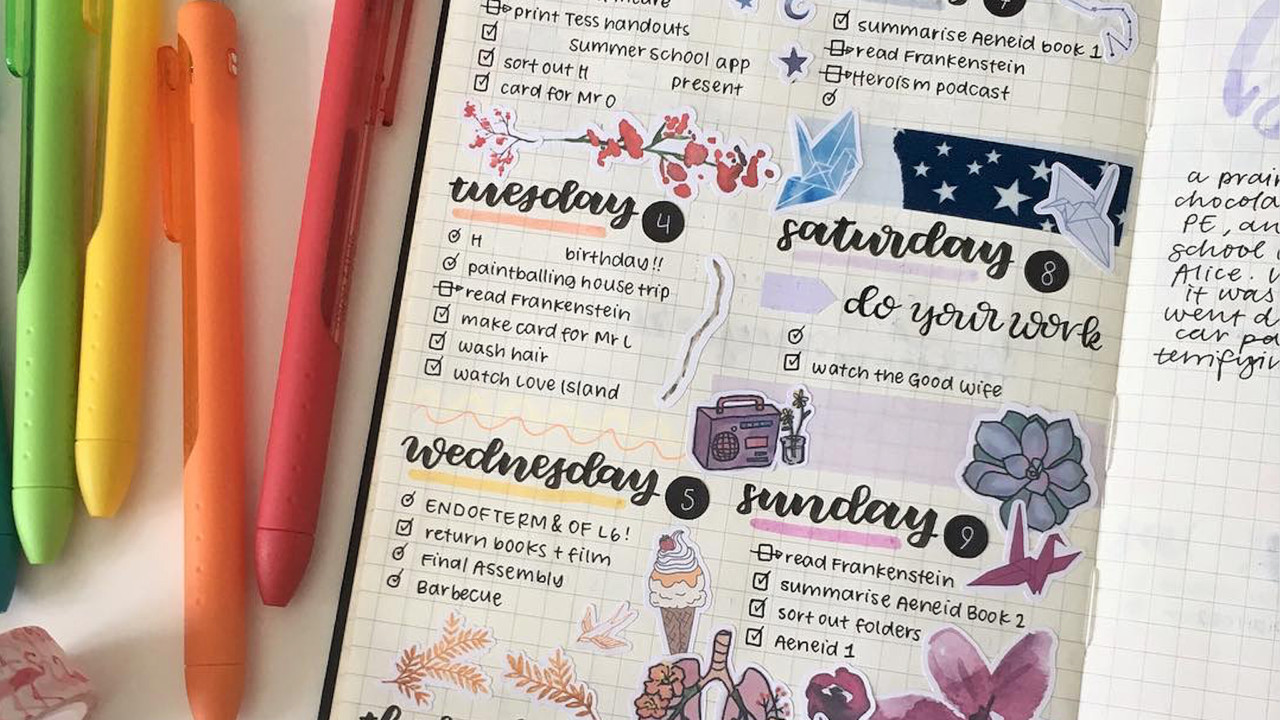 print Tess handouts
summer school app
sort out H present
card for Mr O
tuesday 4
H birthday!!
paintballing house trip
read Frankenstein
make card for Mr L
wash hair
watch Love Island
wednesday 5
END OF TERM & OF L6!
return books + film
Final Assembly
Barbecue
7
summarise Aeneid book 1
read Frankenstein
Heroism podcast
saturday 8
do your work
watch the Good Wife
sunday 9
read Frankenstein
summarise Aeneid Book 2
sort out folders
Aeneid 1
a
PE,
school
Alice.
it was
went
car